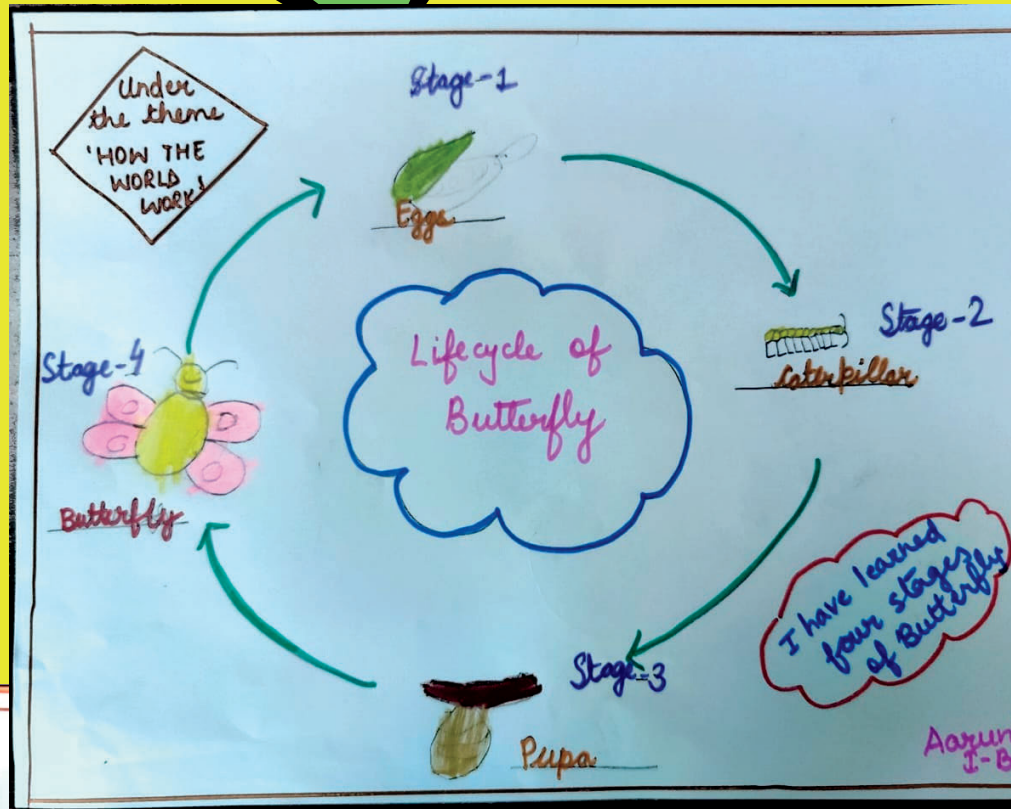 Under
the theme
'HOW THE
WORLD
WORK'
Stage-1
Eggs
Stage-2
Caterpillar
Lifecycle of
Butterfly
Stage-4
Butterfly
Stage-3
Pupa
I have learned
four stages
of Butterfly
Aarun
I-B